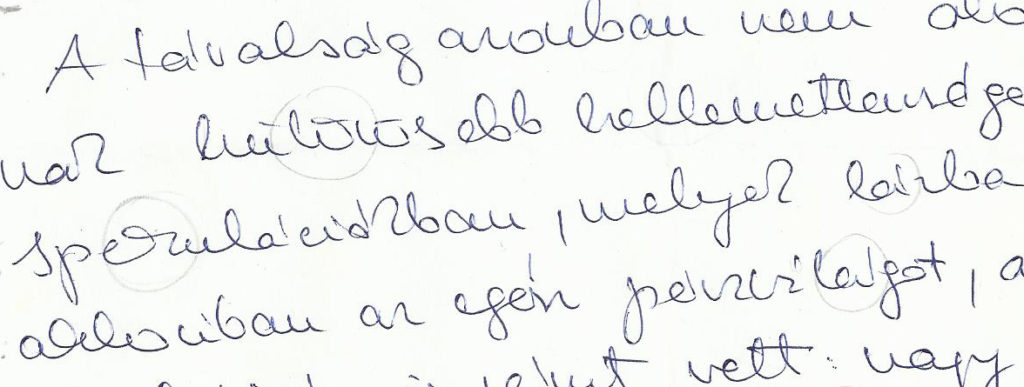 A távolság azonban nem
nak különösebb kellemetlensége
spekulációkban, melyek lázba
akkoriban az egész pénzvilágot, a
vett: nagy